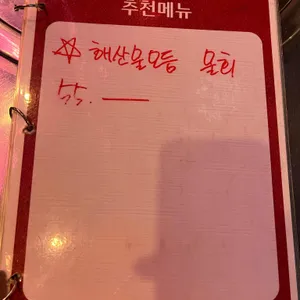 추천메뉴
☆ 해산물모듬 물회
55.—